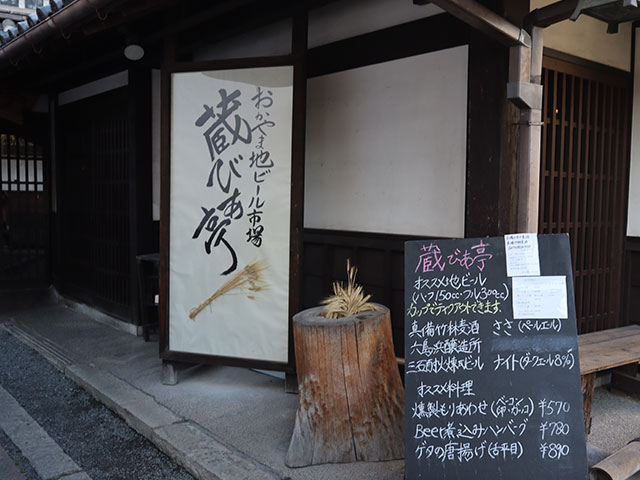 おかやま地ビール市場
蔵びあ亭
蔵びあ亭
オススメ地ビール
(ハーフ150cc・フル300cc)
カップでテイクアウトできます。
真備竹林麦酒 ささ(ペールエール)
六島浜醸造所
三石耐火煉瓦ビール ナイト(ダークエール8%)
オススメ料理
燻製もりあわせ(ベーコン ¥570
Beer煮込みハンバーグ ¥780
ゲタの唐揚げ(舌平目) ¥890